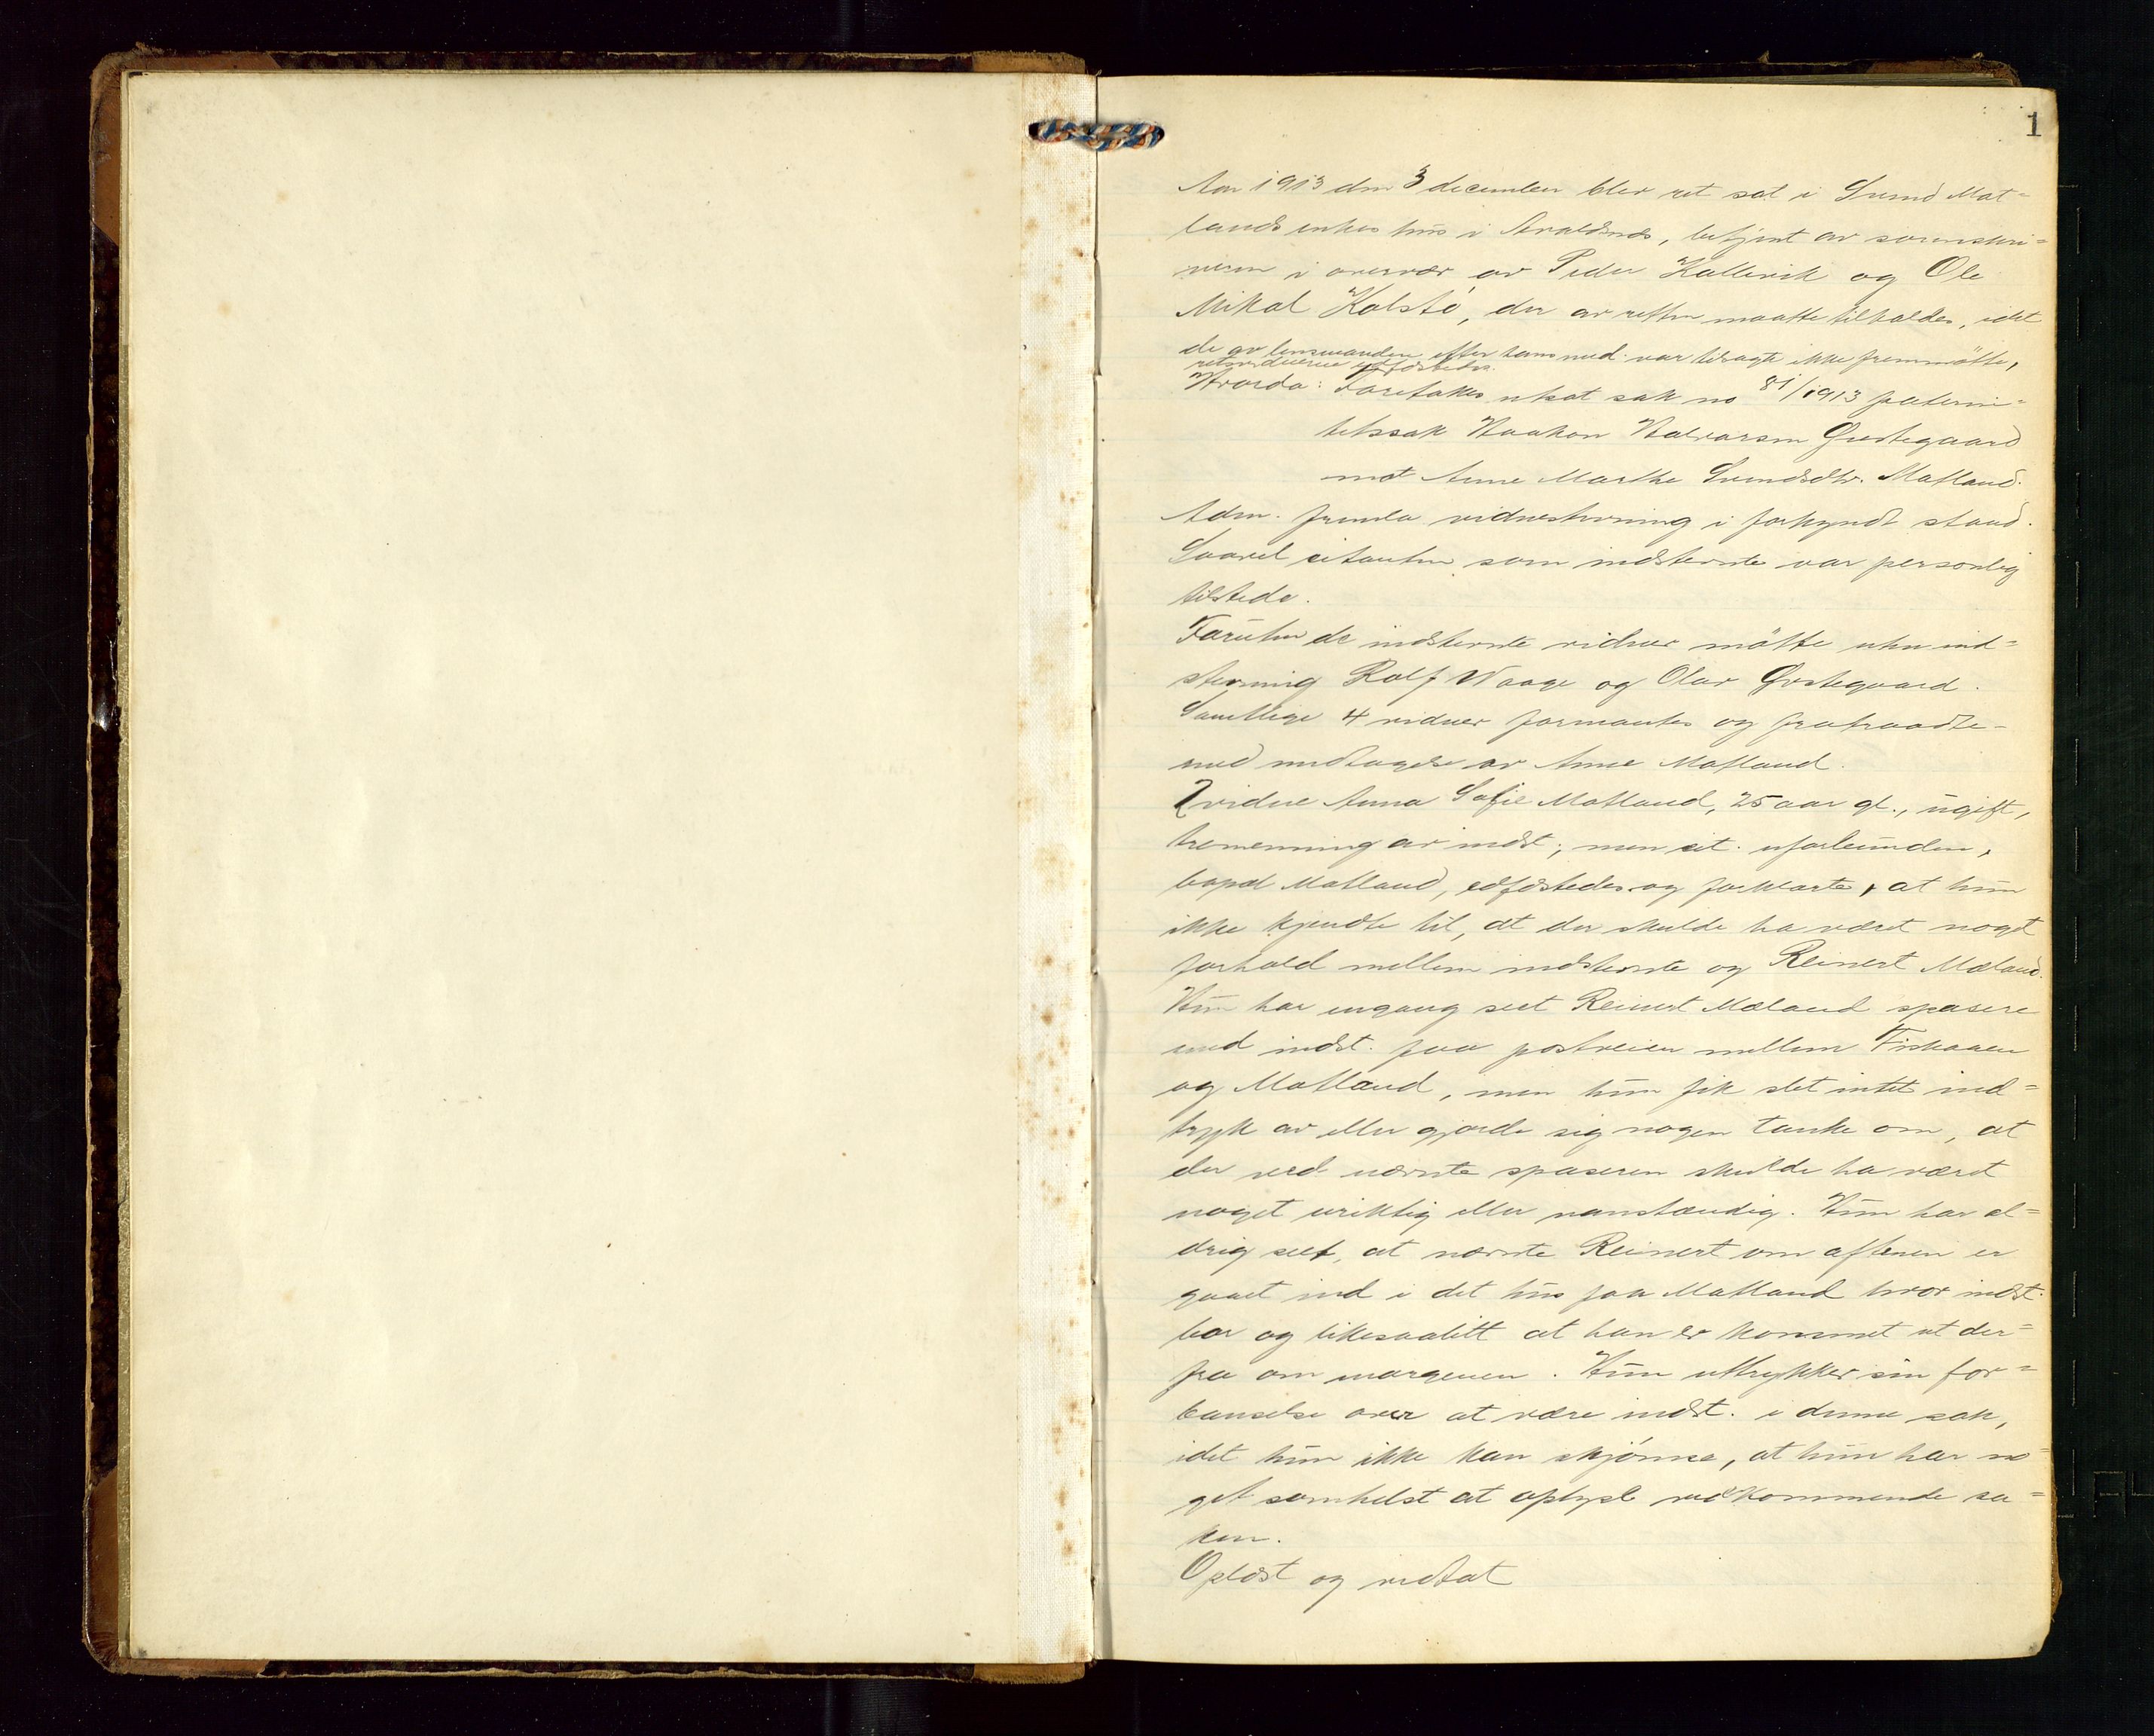 1
Aar 1913 den 3 december blev ret sat i Svend Mat=
lands enkes hus i Avaldsnes, betjent av sorenskri=
veren i overvær av Peder Kallevik og Ole
Mikal Kolstø, der av retten maatte tilkaldes, idet
de av lensmanden efter hans med. var tilsagte ikke fremmøtte,
retsvidnerne edfæstedes.
Hvorda: Foretakes utsat sak no 81/1913 paterni=
tetssak Haakon Halvorsen Østegaard
mot Anne Marthe Svendsdtr. Matland.
Adm. fremla vidnestevning i forkyndt stand.
Saavel citanten som indstevnte var personlig
tilstede.
Foruten de indstevnte vidner møtte uten ind=
stevning Rolf Waage og Olav Østegaard.
Samtlige 4 vidner formantes og fratraadte
med undtagelse av Anna Matland.
2 vidne Anna Sofie Matland, 25 aar gl., ugift,
tremenning av indst., men cit. uforbunden,
bopæl Matland, edfæstedes og forklarte, at hun
ikke kjendte til, at der skulde ha været noget
forhold mellem indstevnte og Reinert Mæland.
Hun har engang seet Reinert Mæland spasere
med indst. paa postveien mellem Fiskaaen
og Matland, men hun fik slet intet ind=
tryk av eller gjorde sig nogen tanke om, at
der ved nævnte spaseren skulde ha været
noget uriktig eller uanstændig. Hun har al=
drig seet, at nævnte Reinert om aftenen er
gaaet ind i det hus paa Matland hvor indst.
bor og likesaalitt at han er kommet ut der=
fra om morgenen. Hun uttrykker sin for=
bauselse over at være indst. i denne sak,
idet hun ikke kan skjønne, at hun har no=
get somhelst at oplyse vedkommende sa=
ken.
Oplæst og vedtat